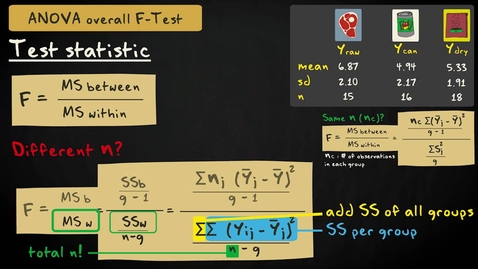 ANOVA overall F-Test
Test statistic
F = MS between / MS within
Y raw Y can Y dry
mean 6.87 4.94 5.33
sd 2.10 2.17 1.91
n 15 16 18
Same n (nc)?
F = MS between / MS within = (nc Σ(Ȳj - Ȳ)² / g-1) / (ΣSj² / g)
nc : # of observations
in each group
Different n?
F = MSb / MSw = (SSb / g-1) / (SSw / n-g) = (Σnj (Ȳj - Ȳ)² / g-1) / (ΣΣ (Yij - Ȳj)² / n - g)
add SS of all groups
SS per group
total n!